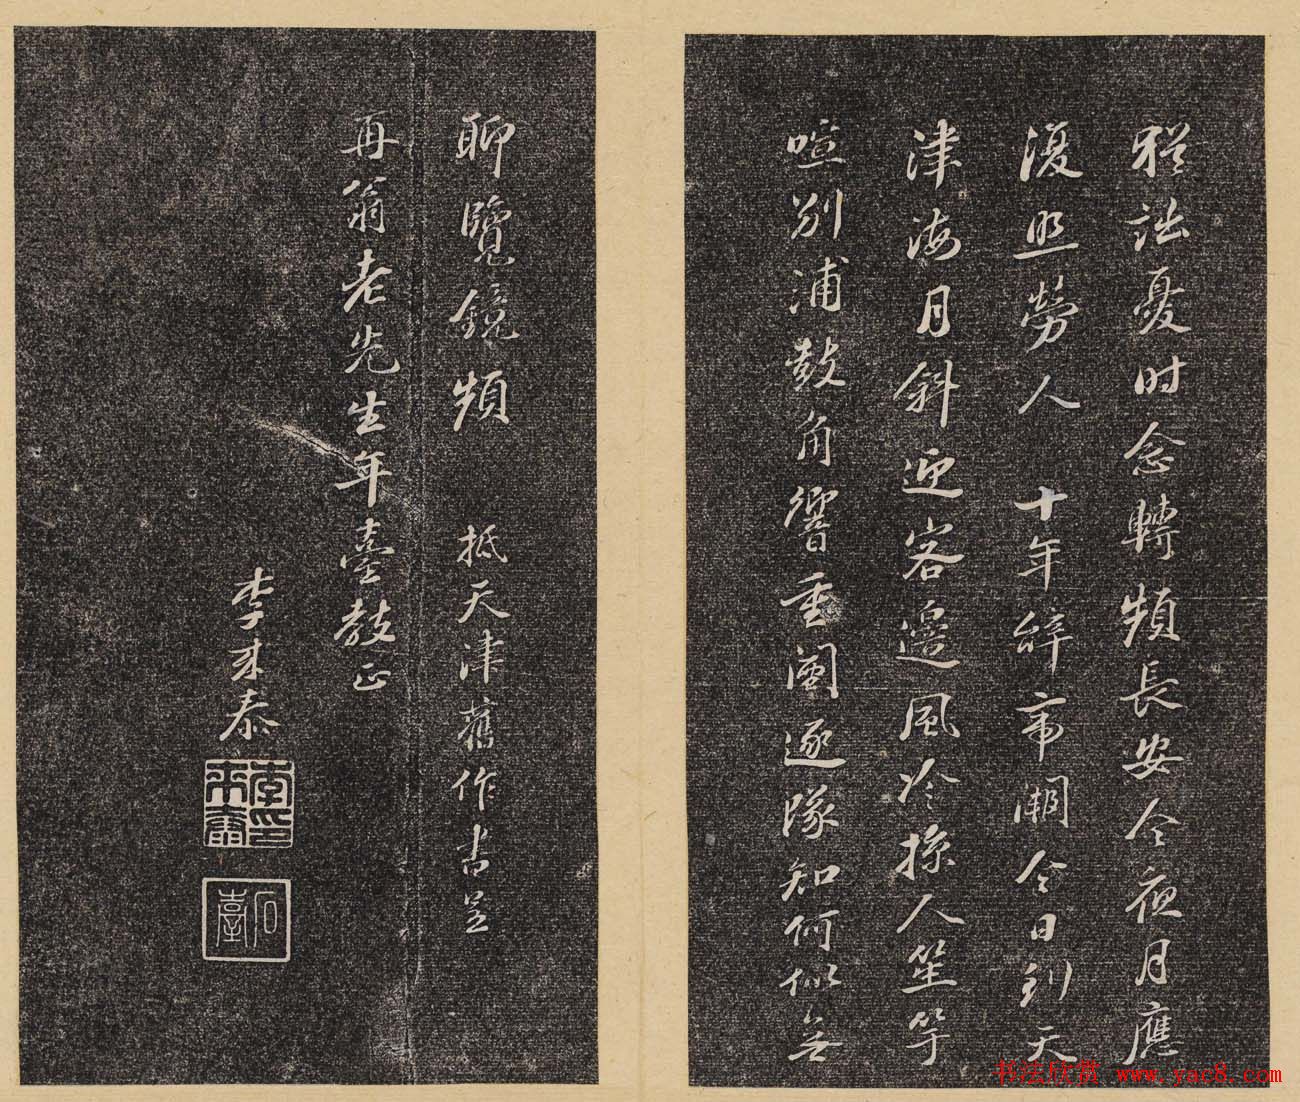 猶詘憂时念轉頻長安今夜月應
復照勞人　十年辭帝闕今日到天
津海月斜迎客邊風冷探人笙竽
喧别浦鼓角響重闉逐隊知何似無
聊覽鏡頻　抵天津舊作書呈
再翁老先生年臺教正
李来泰
李来泰印
石臺
书法欣赏 www.yac8.com